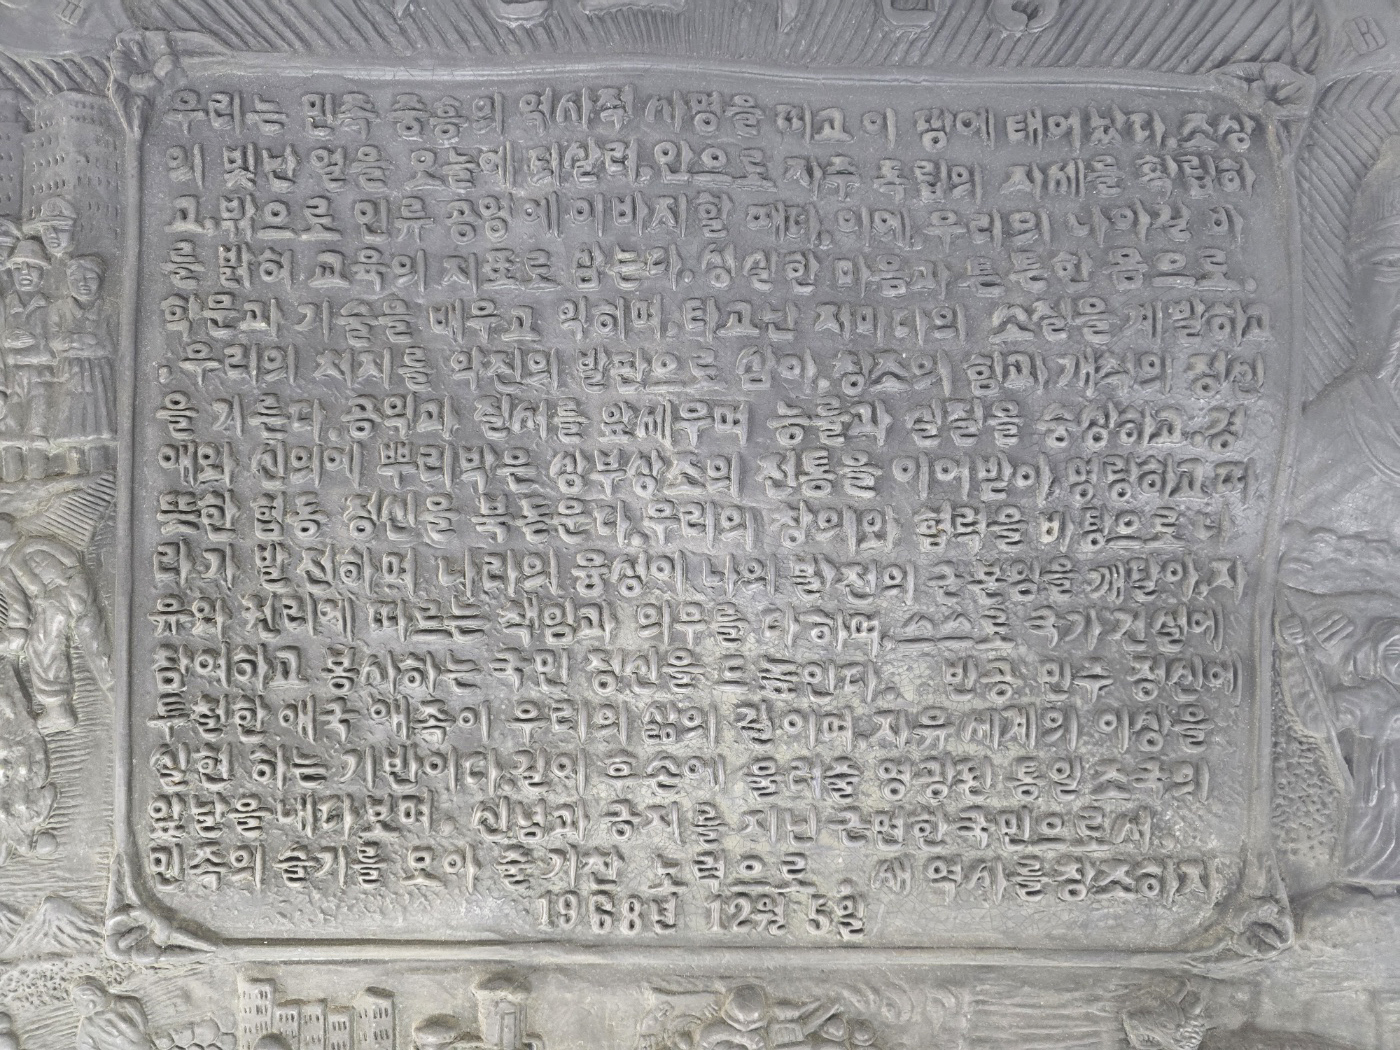 우리는 민족 중흥의 역사적 사명을 띠고 이 땅에 태어났다. 조상
의 빛난 얼을 오늘에 되살려, 안으로 자주 독립의 자세를 확립하
고, 밖으로 인류 공영에 이바지할 때다. 이에, 우리의 나아갈 바
를 밝혀 교육의 지표로 삼는다. 성실한 마음과 튼튼한 몸으로,
학문과 기술을 배우고 익히며, 타고난 저마다의 소질을 계발하고
, 우리의 처지를 약진의 발판으로 삼아, 창조의 힘과 개척의 정신
을 기른다. 공익과 질서를 앞세우며 능률과 실질을 숭상하고, 경
애와 신의에 뿌리박은 상부상조의 전통을 이어받아, 명랑하고 따
뜻한 협동 정신을 북돋운다. 우리의 창의와 협력을 바탕으로 나
라가 발전하며, 나라의 융성이 나의 발전의 근본임을 깨달아, 자
유와 권리에 따르는 책임과 의무를 다하며, 스스로 국가 건설에
참여하고 봉사하는 국민 정신을 드높인다. 반공 민주 정신에
투철한 애국 애족이 우리의 삶의 길이며, 자유 세계의 이상을
실현 하는 기반이다. 길이 후손에 물려줄 영광된 통일 조국의
앞날을 내다보며, 신념과 긍지를 지닌 근면한 국민으로서,
민족의 슬기를 모아 줄기찬 노력으로, 새 역사를 창조하자
1968년 12월 5일